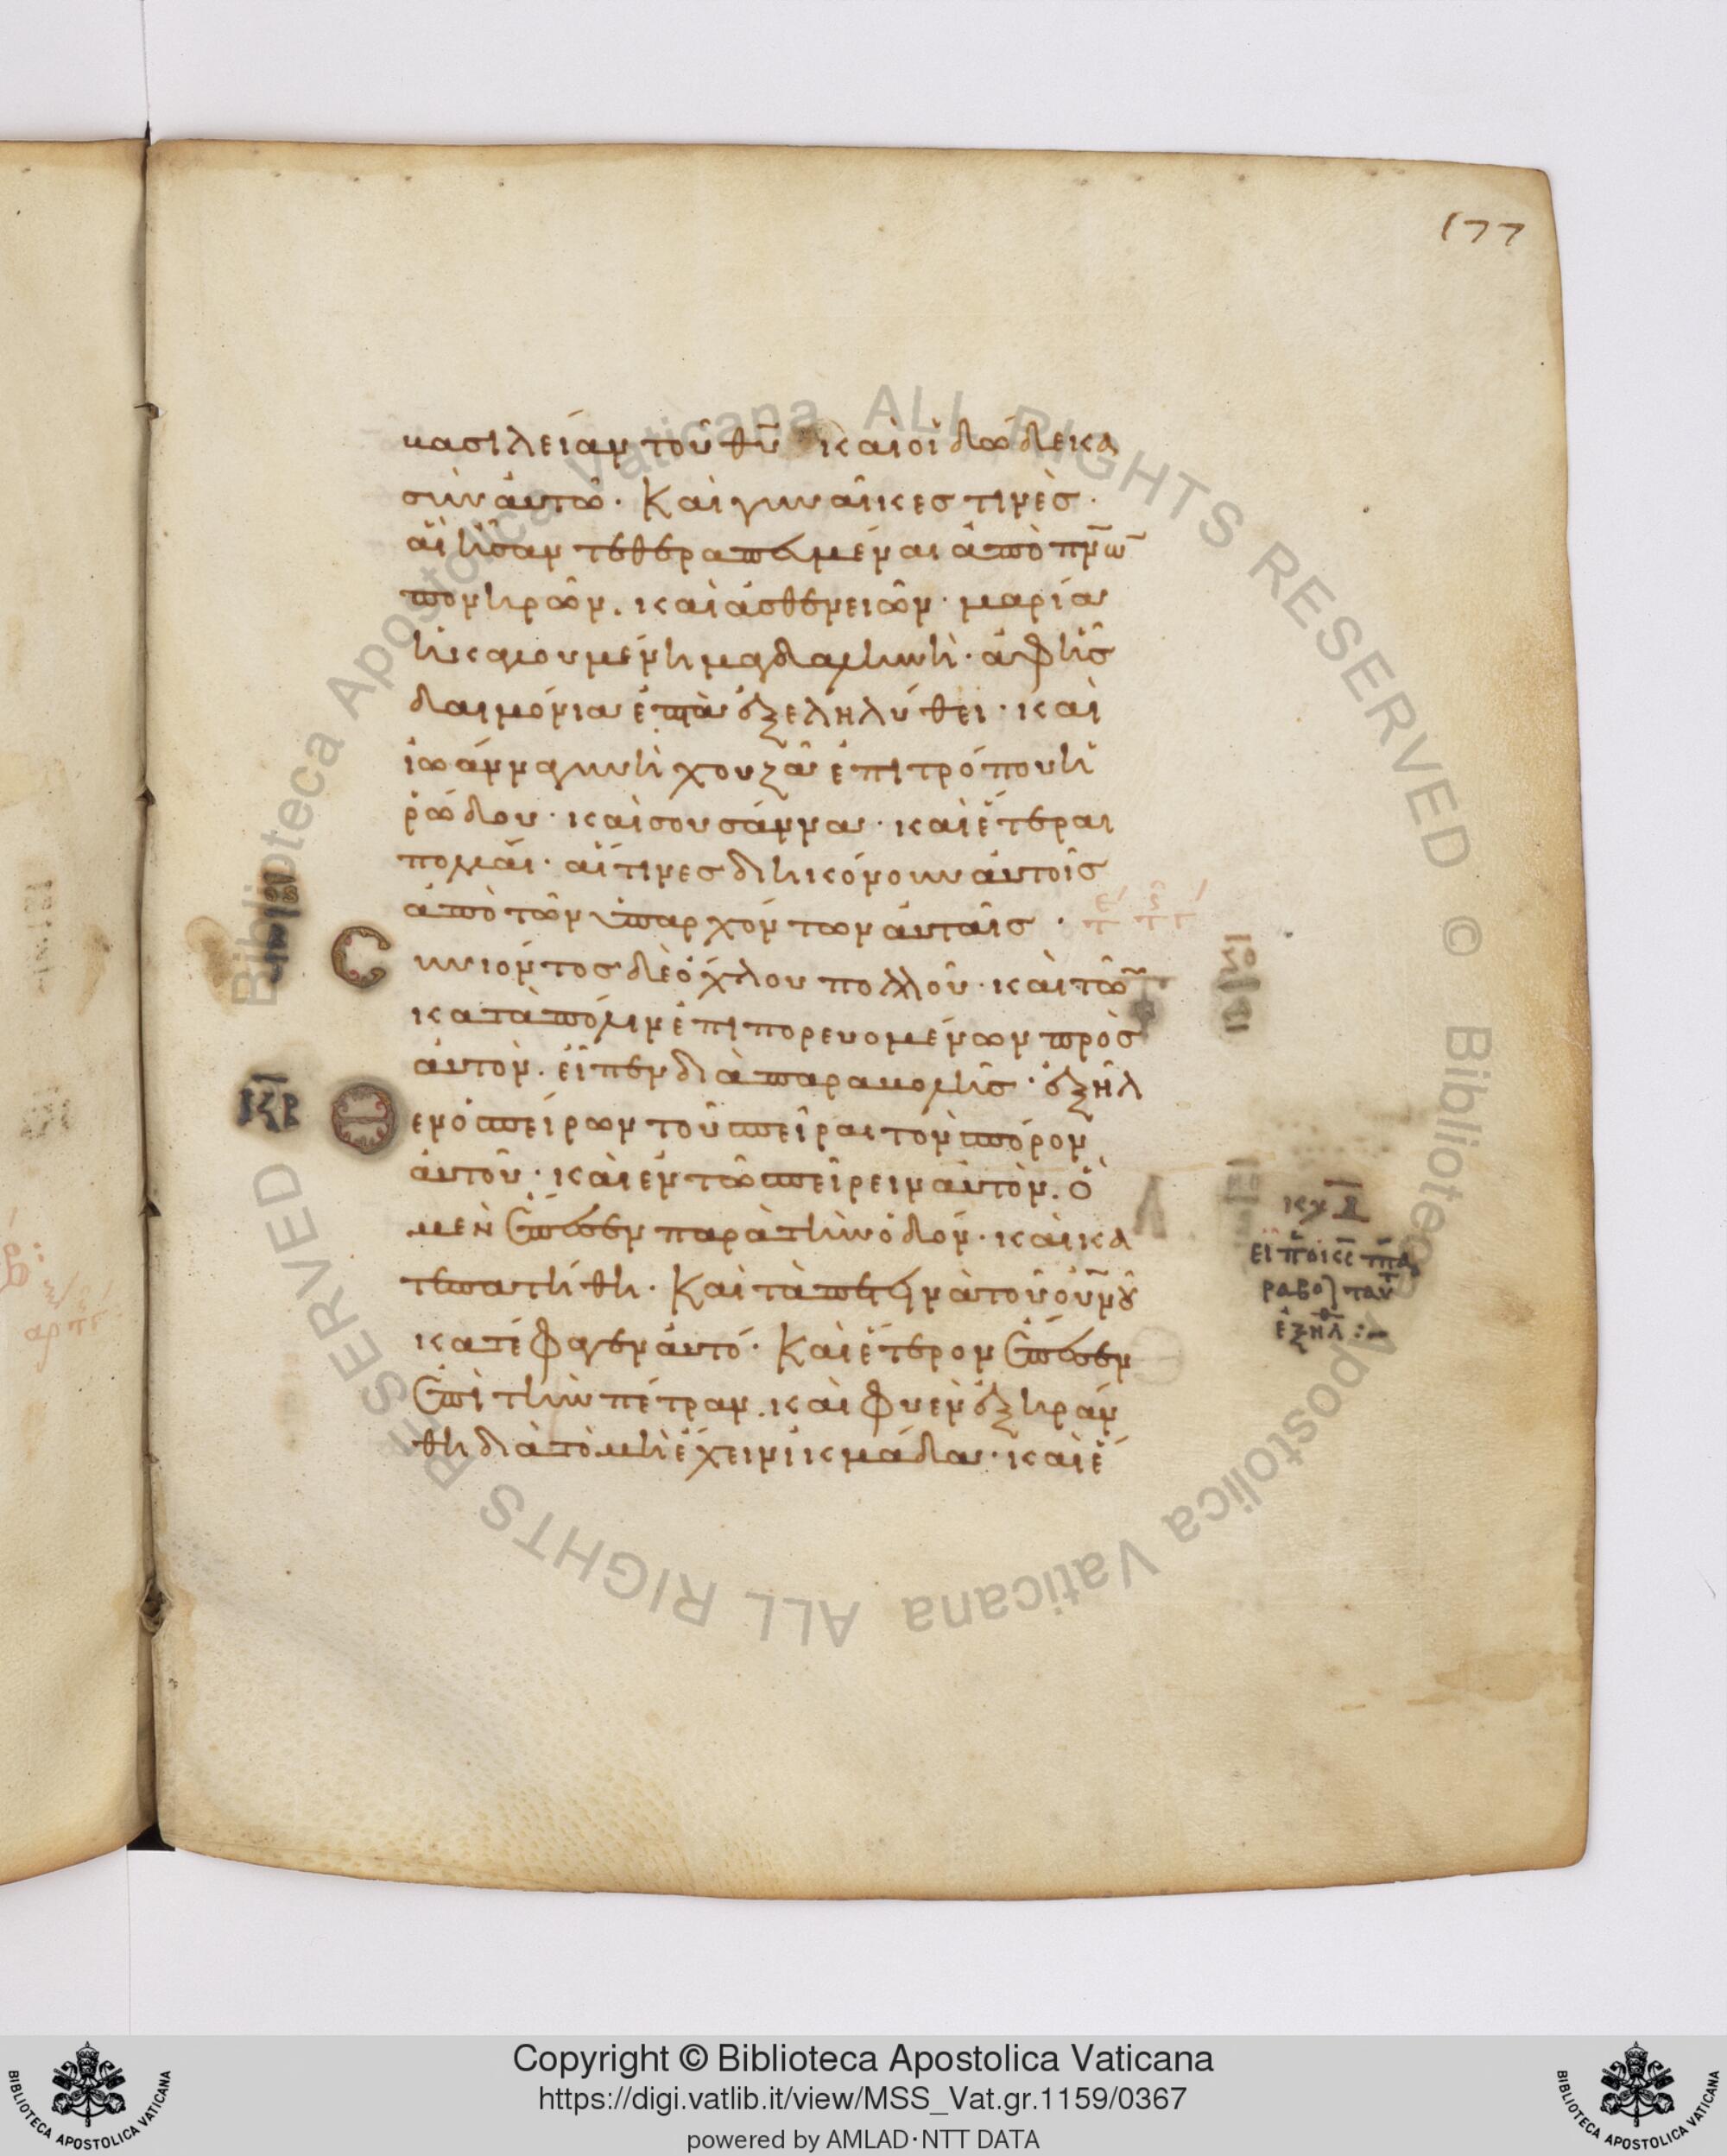 177
βασιλείαν τοῦ θῦ καὶ οἱ δώδεκα
σὺν αὐτῶ· Καὶ γυναῖκες τινὲς·
αἳ ἦσαν τεθεραπευμέναι ἀπὸ πν̅ω̅
πονηρῶν. καὶ ἀσθενειῶν· μαρία
ἡ καλουμένη μαγδαληνὴ· ἀφ ἧς
δαιμόνια ἑπτὰ ἐξεληλύθει· καὶ
ἰωάννα γυνὴ χουζᾶ ἐπιτρόπου ἡ
ρώδου· καὶ σουσάννα· καὶ ἕτεραι
πολλαί· αἵτινες διηκόνουν αὐτοῖς
ἀπὸ τῶν ὑπαρχόντων αὐταῖς·
Cυνιόντος δὲ ὄχλου πολλοῦ· καὶ τῶ̅
κατὰ πόλιν ἐπιπορευομένων πρὸς
αὐτὸν. εἶπεν διὰ παραβολῆς· ἐξῆλ
Θεν ὁ σπείρων τοῦ σπεῖραι τὸν σπόρον
αὐτοῦ· καὶ ἐν τῶ σπεῖρειν αὐτὸν. ὃ
μὲν ἔπεσεν παρὰ τὴν ὁδόν· καὶ κα
τεπατήθη· Καὶ τὰ πετεινὰ τοῦ οὐν̅ου
κατέφαγεν αὐτό· Καὶ ἕτερον ἔπεσεν
ἐπὶ τὴν πέτραν. καὶ φυὲν ἐξηράν
θη διὰ τὸ μὴ ἔχειν ἰκμάδα· καὶ ἕ
Copyright © Biblioteca Apostolica Vaticana
https://digi.vatlib.it/view/MSS_Vat.gr.1159/0367
powered by AMLAD·NTT DATA
BIBLIOTECA APOSTOLICA VATICANA
BIBLIOTECA APOSTOLICA VATICANA
Biblioteca Apostolica Vaticana ALL RIGHTS RESERVED © Biblioteca Apostolica Vaticana ALL RIGHTS RESERVED ©